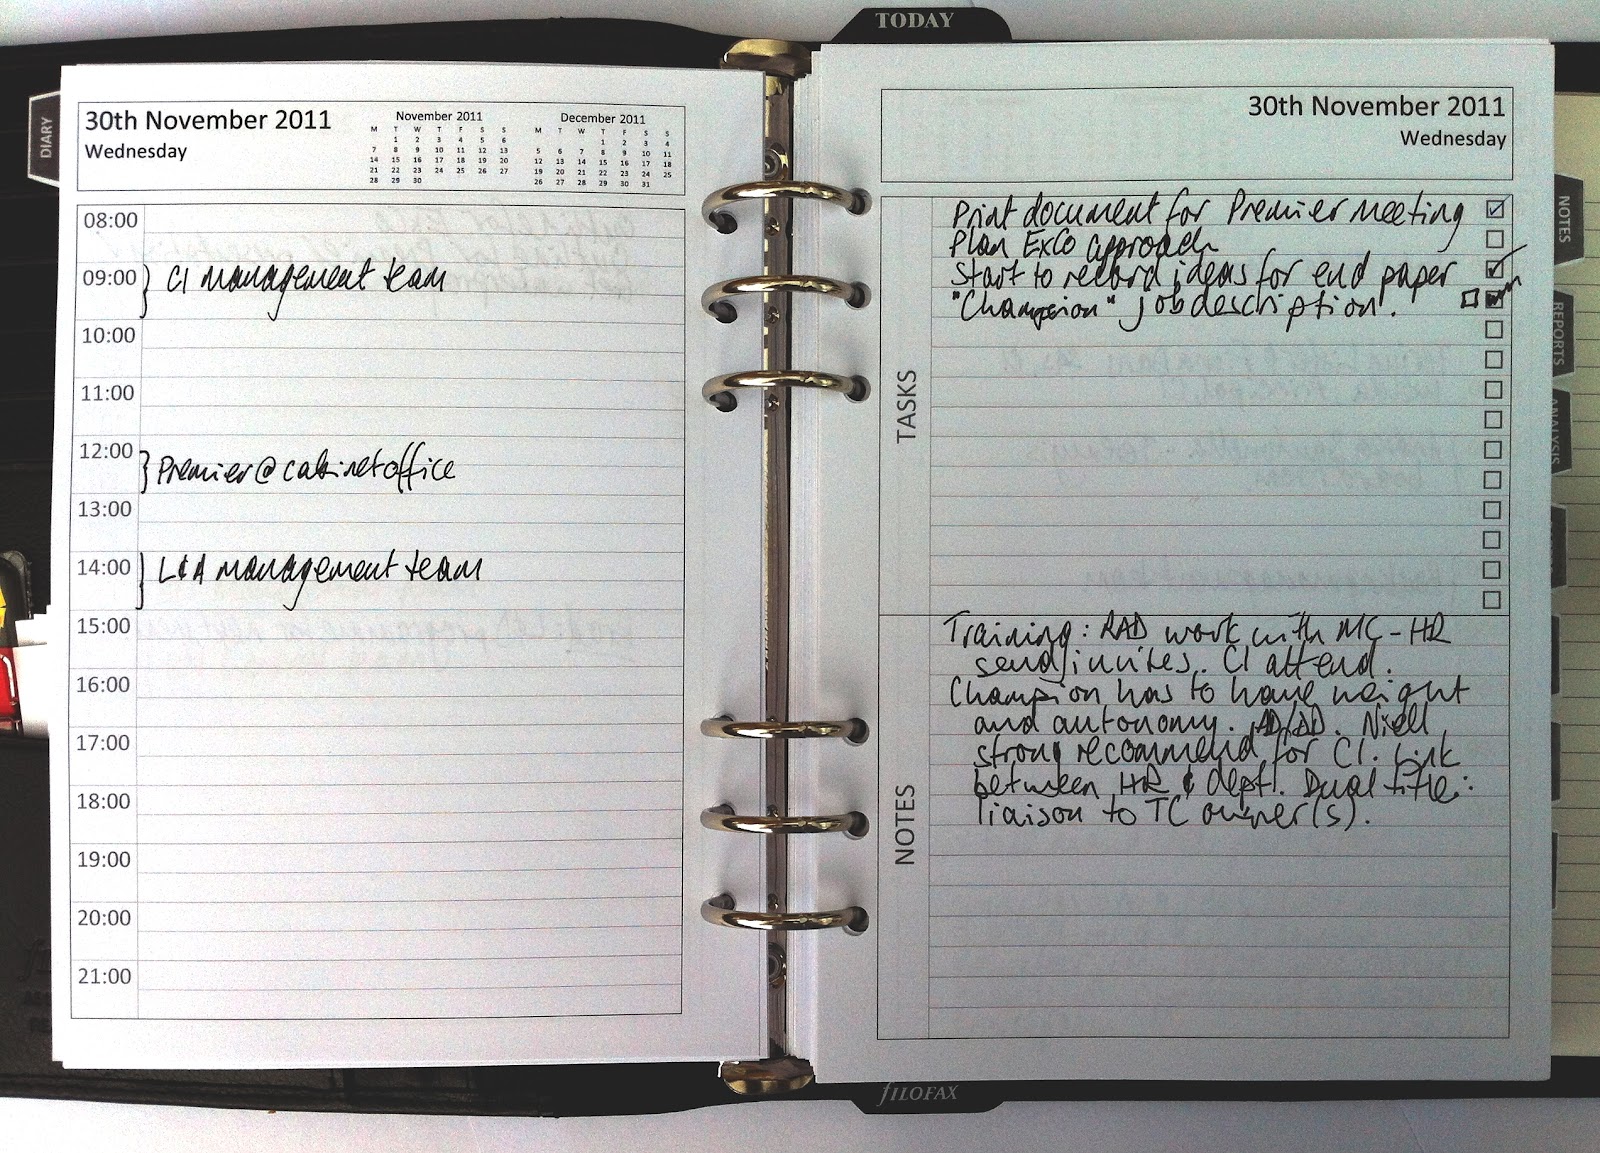 TODAY
DIARY
30th November 2011
Wednesday
November 2011
M T W T F S S
1 2 3 4 5 6
7 8 9 10 11 12 13
14 15 16 17 18 19 20
21 22 23 24 25 26 27
28 29 30
December 2011
M T W T F S S
1 2 3 4
5 6 7 8 9 10 11
12 13 14 15 16 17 18
19 20 21 22 23 24 25
26 27 28 29 30 31
08:00
09:00 CI management team
10:00
11:00
12:00 Premier@cabinet office
13:00
14:00 L&A management team
15:00
16:00
17:00
18:00
19:00
20:00
21:00
30th November 2011
Wednesday
TASKS
Print document for Premier meeting
Plan ExCo approach
Start to record ideas for end paper
"Champion" job description.
NOTES
Training: RAD work with MC-HR
send invites. CI attend.
Champion has to have weight
and autonomy. AD/AD. Niell
strong recommend for CI. Link
between HR & dept. Dual title:
liaison to TC owner(s).
NOTES
REPORTS
ANALYSIS
fILOFAX